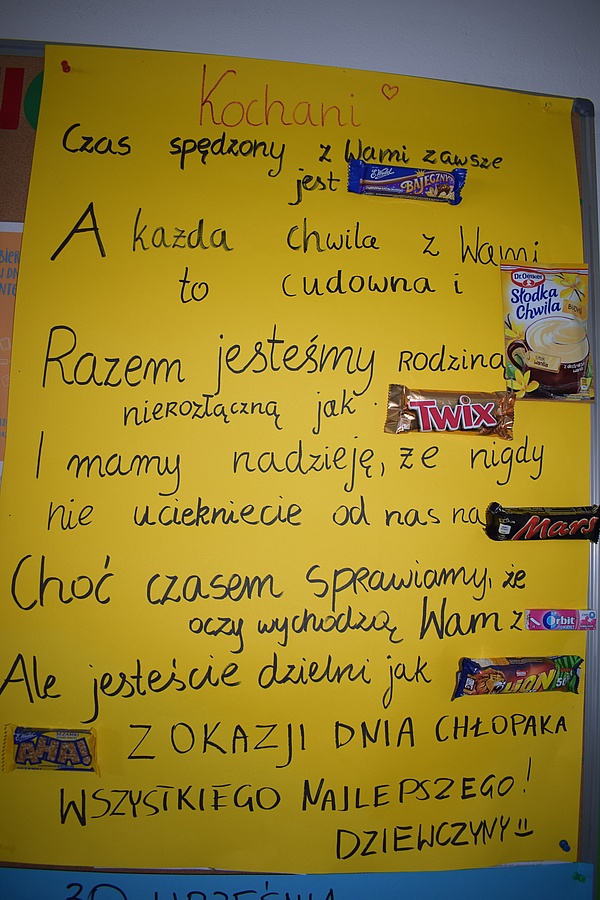 Kochani ♡
Czas spędzony z Wami zawsze
jest E. Wedel BAJECZNY
A każda chwila z Wami
to cudowna i Dr. Oetker Słodka Chwila
Razem jesteśmy Rodziną
nierozłączną jak TWIX
I mamy nadzieję, że nigdy
nie uciekniecie od nas na Mars
Choć czasem sprawiamy, że
oczy wychodzą Wam z Orbit
Ale jesteście dzielni jak LION
AHA! Z OKAZJI DNIA CHŁOPAKA
WSZYSTKIEGO NAJLEPSZEGO!
DZIEWCZYNY
30 WRZEŚNIA